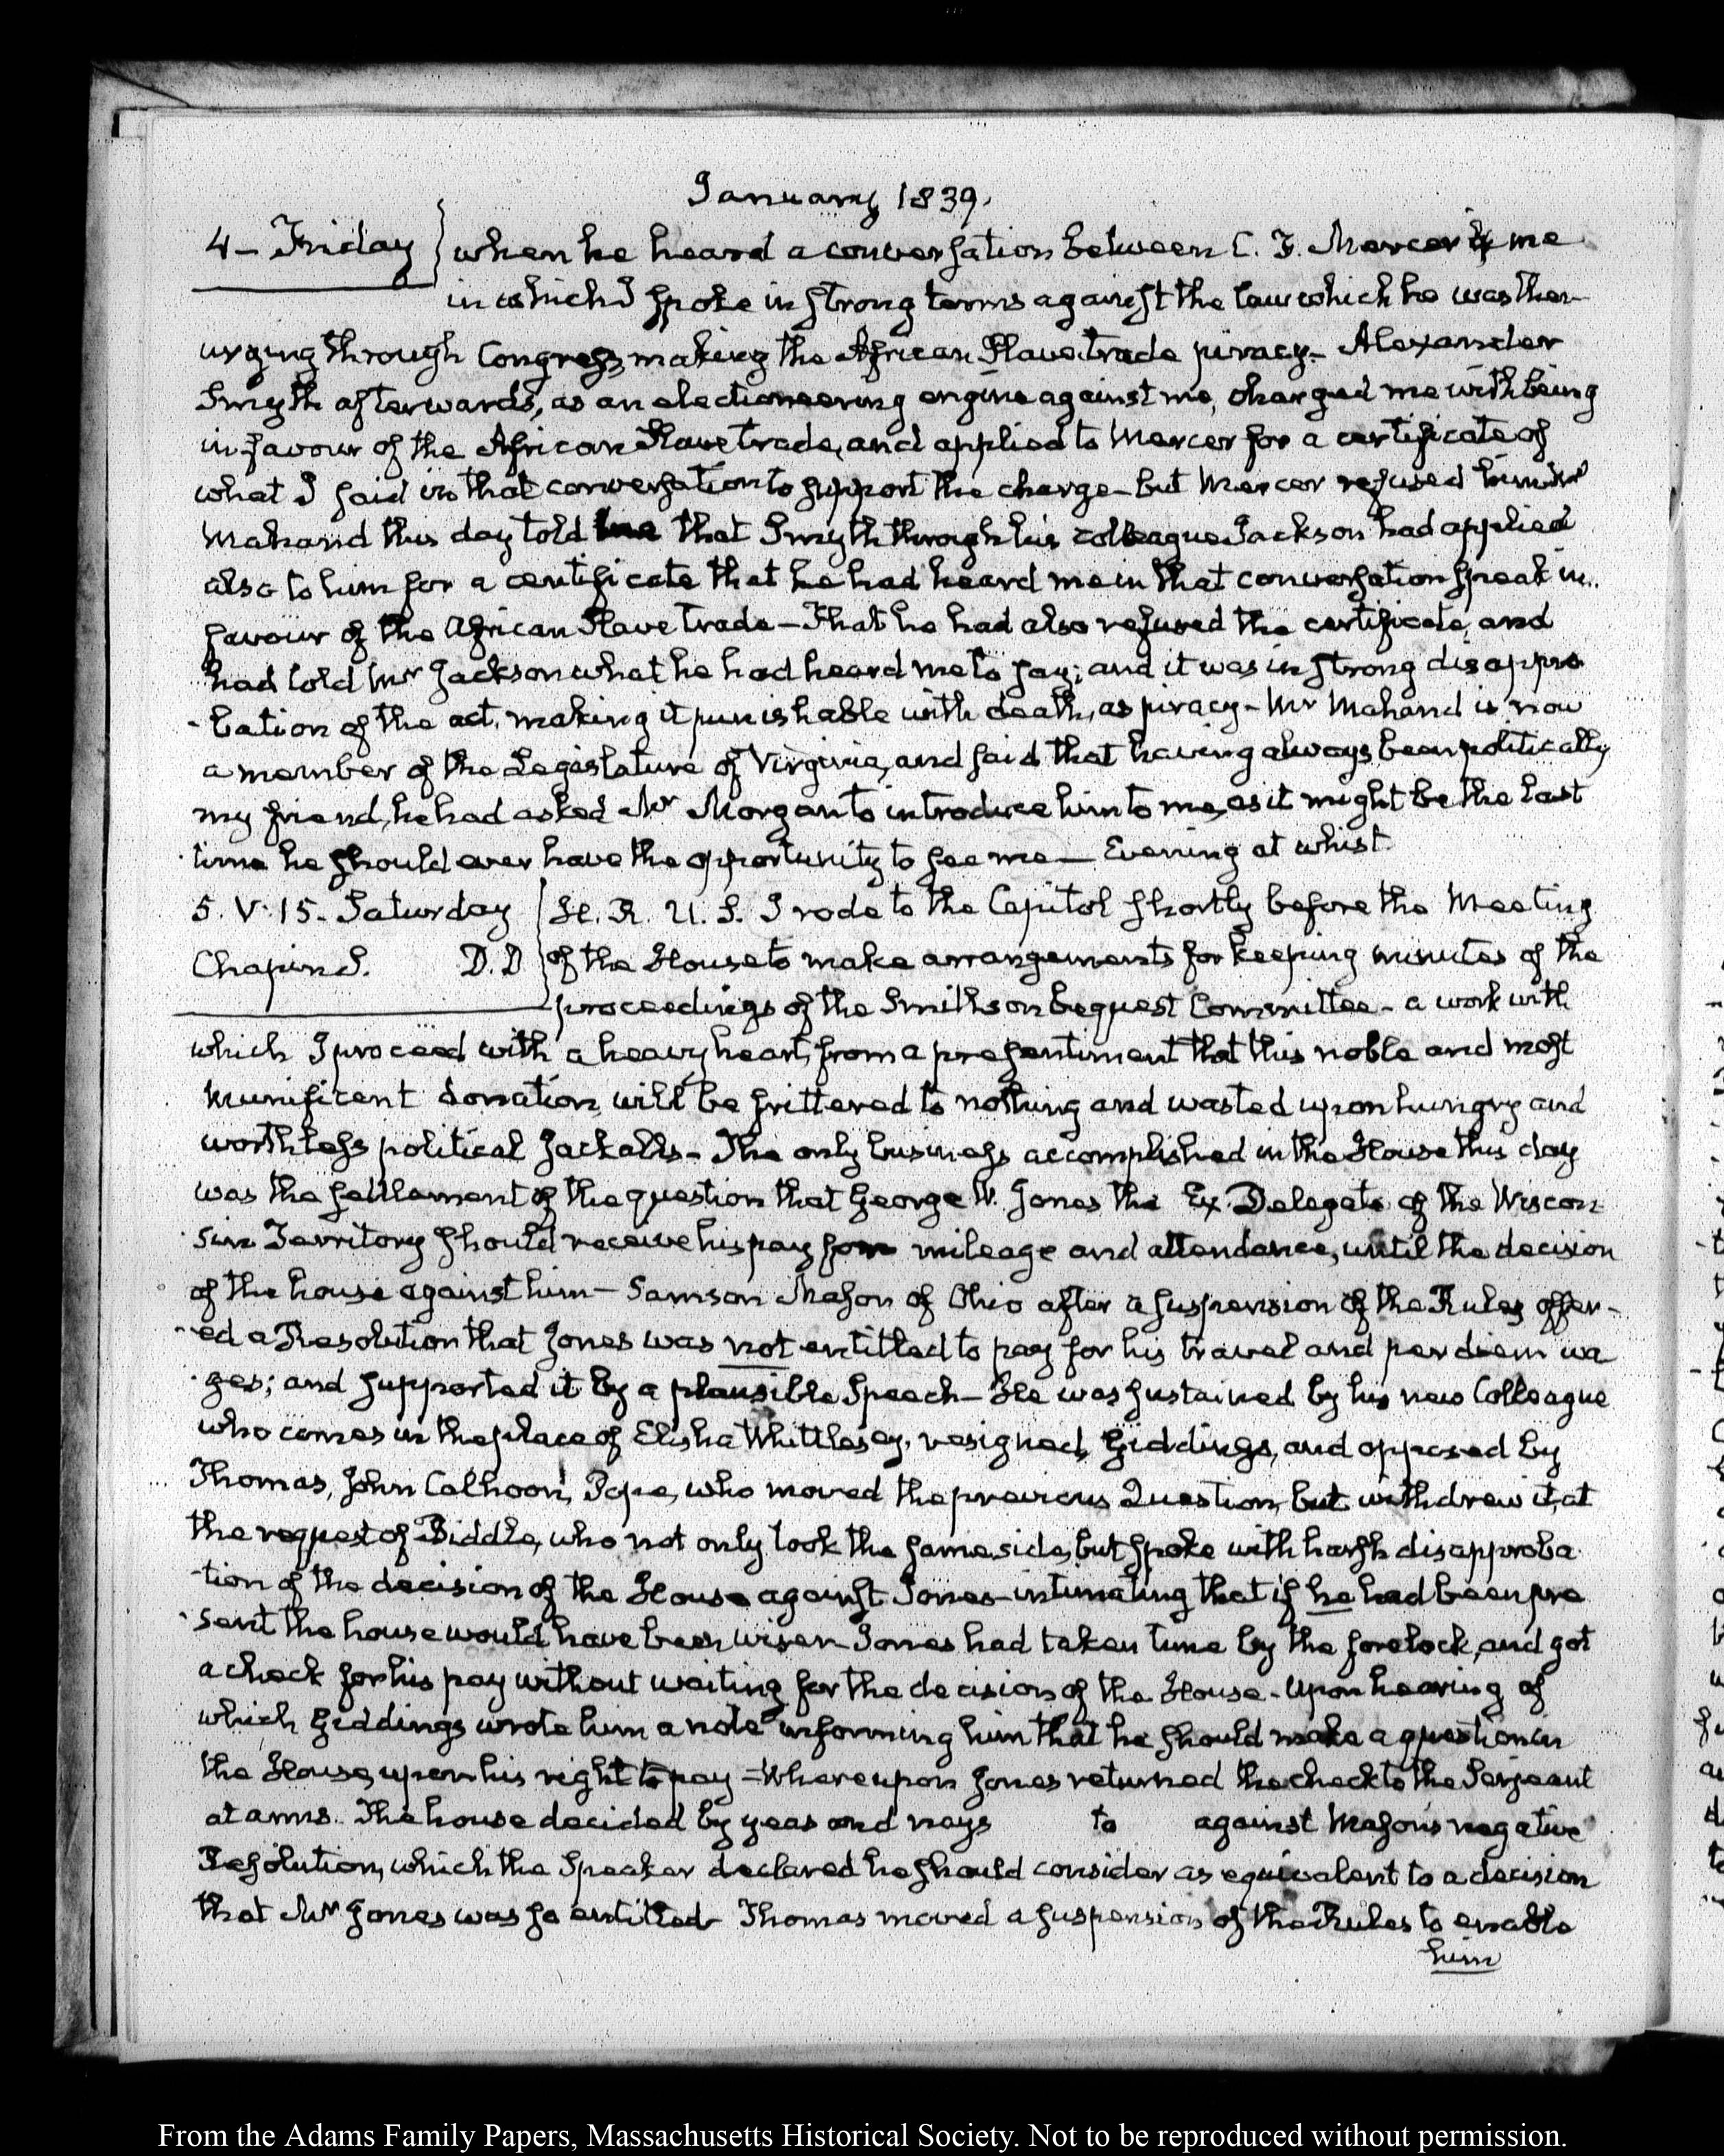 January 1839.
4 - Friday } when he heard a conversation between C. F. Mercer & me
in which I spoke in strong terms against the law which he was then
urging through Congress, making the African Slave trade piracy - Alexander
Smyth afterwards, as an electioneering engine against me, charged me with being
in favour of the African Slave trade, and applied to Mercer for a certificate of
what I said in that conversation to support the charge - but Mercer refused him
Mahand this day told me that Smyth through his colleague Jackson had applied
also to him for a certificate that he had heard me in that conversation speak in
favour of the African Slave trade - That he had also refused the certificate, and
had told Mr Jackson what he had heard me to say; and it was in strong disappro
-bation of the act, making it punishable with death, as piracy - Mr Mahand is now
a member of the Legislature of Virginia, and said that having always been politically
my friend, he had asked Mr Morgan to introduce him to me, as it might be the last
time he should ever have the opportunity to see me - Evening at whist.
5. V. 15. Saturday } H. R. U. S. I rode to the Capitol shortly before the Meeting
Chapin S. D. D } of the House to make arrangements for keeping minutes of the
proceedings of the Smithson bequest Committee - a work with
which I proceed with a heavy heart, from a presentiment that this noble and most
munificent donation will be frittered to nothing and wasted upon hungry and
worthless political Jackalls - The only business accomplished in the House this day
was the settlement of the question that George W. Jones the Ex Delegate of the Wiscon-
sin Territory should receive his pay for mileage and attendance, until the decision
of the house against him - Samson Mason of Ohio after a suspension of the Rules offer-
-ed a Resolution that Jones was not entitled to pay for his travel and per diem wa
ges; and supported it by a plausible Speech - He was sustained by his new Colleague
who comes in the place of Elisha Whittlesey, resigned, Giddings, and opposed by
Thomas, John Calhoon, Pope, who moved the previous Question, but withdrew it, at
the request of Biddle, who not only took the same side, but spoke with harsh disapproba
-tion of the decision of the House against Jones - intimating that if he had been pre
sent the house would have been wiser - Jones had taken time by the forelock, and got
a check for his pay without waiting for the decision of the House - Upon hearing of
which Giddings wrote him a note informing him that he should make a question in
the House, upon his right to pay - Whereupon Jones returned the check to the Serjeant
at arms. The house decided by yeas and nays to against Mason's negative
Resolution, which the Speaker declared he should consider as equivalent to a decision
that Mr Jones was so entitled - Thomas moved a suspension of the Rules to enable
him
From the Adams Family Papers, Massachusetts Historical Society. Not to be reproduced without permission.